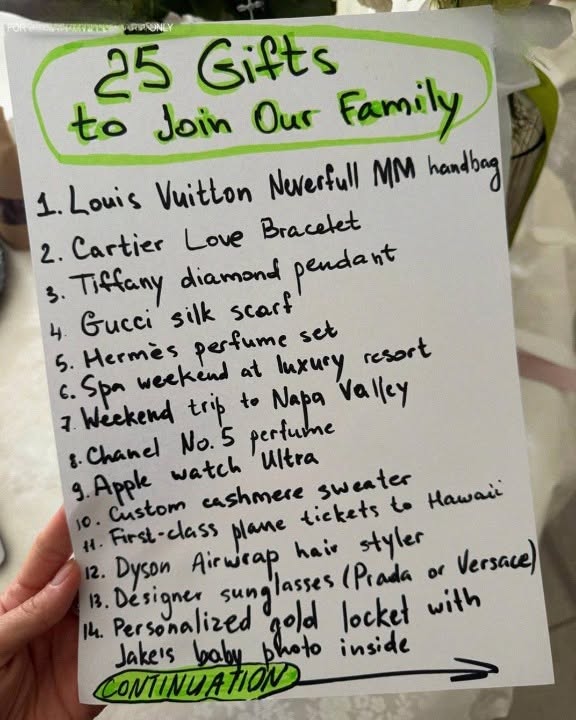 25 Gifts
to Join Our Family
1. Louis Vuitton Neverfull MM handbag
2. Cartier Love Bracelet
3. Tiffany diamond pendant
4. Gucci silk scarf
5. Hermès perfume set
6. Spa weekend at luxury resort
7. Weekend trip to Napa Valley
8. Chanel No. 5 perfume
9. Apple watch Ultra
10. Custom cashmere sweater
11. First-class plane tickets to Hawaii
12. Dyson Airwrap hair styler
13. Designer sunglasses (Prada or Versace)
14. Personalized gold locket with
Jake's baby photo inside
CONTINUATION